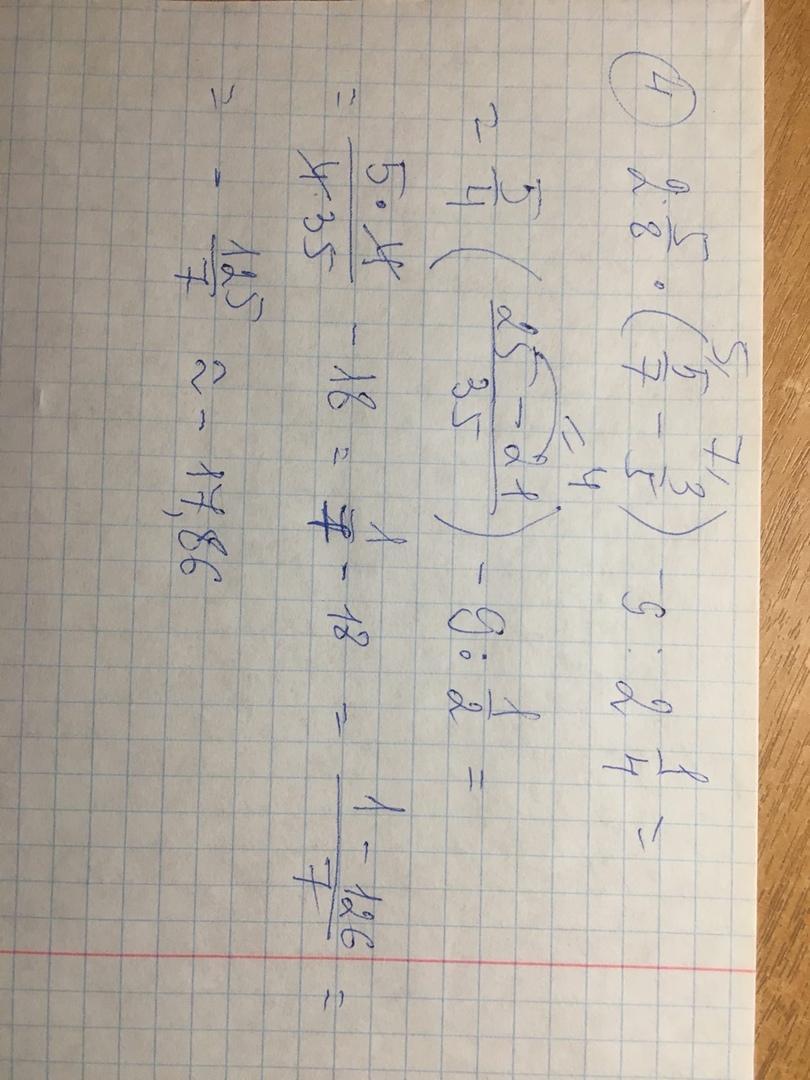 ④ 2 5/8 · (5/7 − 3/5) − 9 : 2 1/4 =
5/ 7/
= 5/4 ((25 − 21)/35) − 9 : 1/2 =
= 4
= (5 · 4)/(4 · 35) − 18 = 1/7 − 18 = (1 − 126)/7 =
= − 125/7 ≈ − 17,86